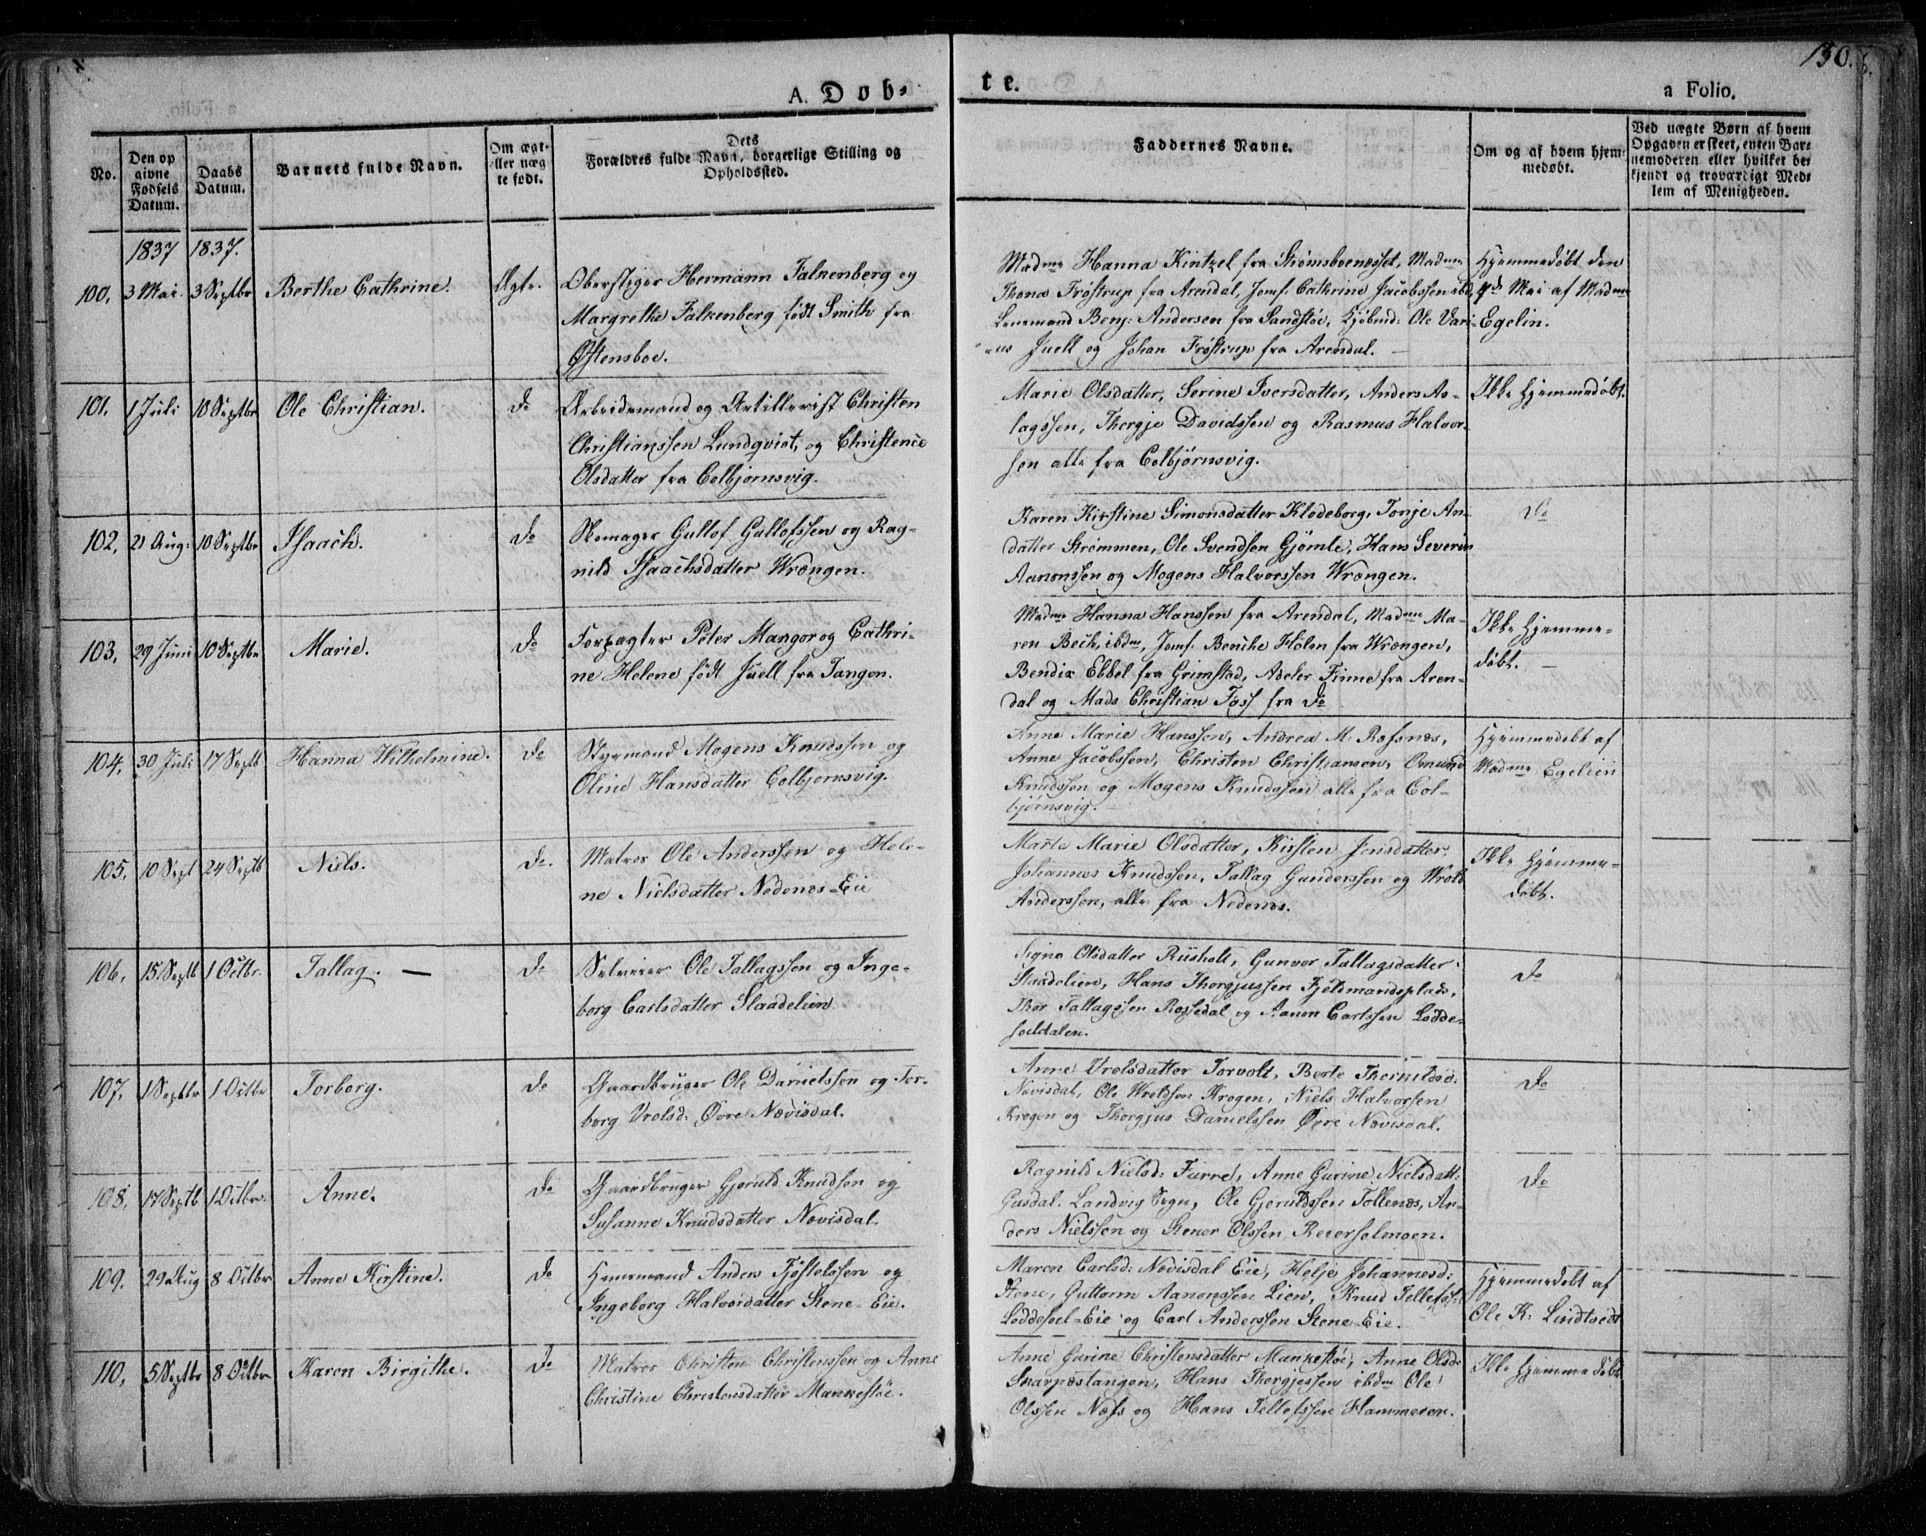 150.
A. Døb-
te.
a Folio.
No.
Den op
givne
Fødsels
Datum.
Daabs
Datum.
Barnets fulde Navn.
Om ægt-
eller uæg
te født.
Dets
Forældres fulde Navn, borgerlige Stilling og
Opholdssted.
Faddernes Navne.
Om og af hvem hjem-
medøbt.
Ved uægte Børn af hvem
Opgaven er skeet, enten Bar-
nemoderen eller hvilket be-
kjendt og troværdigt Med-
lem af Menigheden.
1837 1837.
100. 3 Mai. 3 Septbr Berthe Cathrine. Ægte. Oberstiger Hermann Falkenberg og
Margrethe Falkenberg født Smith fra
Østensboe.
Madme Hanna Kintzel fra Strømsboenæsset, Madme
Thona Frøstrup fra Arendal, Jomf. Cathrine Jacobssen ibd,
Lensmand Benj: Andersen fra Sandstøe, Kjøbmd: Ole Vari-
us Juell og Johan Frøstrup fra Arendal. —
Hjemmedøbt den
4de Mai af Madme
Egelin.
101. 1 Juli 10 Septbr Ole Christian. do Arbeidsmand og Artillerist Christen
Christianssen Lundqvist, og Christence
Olsdatter fra Colbjørnsvig.
Marie Olsdatter, Serine Iversdatter, Anders As-
lagssen, Thergje Davidssen og Rasmus Halvor-
sen alle fra Colbjørnsvig.
Ikke hjemmedøbt.
102. 21 Aug: 10 Septbr Isaach. do Skomager Gullof Gullofssen og Rag-
nild Isaachsdatter Wrængen.
Karen Kirstine Simonsdatter Klodeborg, Tonje An-
datter Strømmen, Ole Svendsen Gjømle, Hans Severin
Aanonssen og Mogens Halvorssen Wrængen.
do
103. 29 Juni 10 Septbr Marie. do Forpagter Peter Mangor og Cathri-
ne Helene født Juell fra Tangen.
Madme Hanna Hanssen fra Arendal, Madme Ma-
ren Beck, ibdm, Jomf. Benthe Holm fra Wrængen,
Bendix Ebbel fra Grimstad, Adeler Finne fra Aren-
dal og Mads Christian Foss fra do
Ikke hjemme-
døbt. —
104. 30 Juli 17 Septb Hanna Wilhelmine. do Styrmand Mogens Knudssen og
Oline Hansdatter Colbjørnsvig.
Anne Marie Hanssen, Andrea M. Rossnæs,
Anne Jacobssen, Christen Christiansen, Omund
Knudssen og Mogens Knudssen alle fra Col-
bjørnsvig.
Hjemmedøbt af
Madme Egelien
105. 10 Sept 24 Septb Niels. do. Matros Ole Anderssen og Hele-
ne Nielsdatter Nedenæs-Eie
Marte Marie Olsdatter, Kirsten Jensdatter,
Johannes Knudssen, Tallag Gunderssen og Wrold
Anderssen, alle fra Nedenæs.
Ikke hjemme-
døbt.
106. 15 Septb 1 Octbr. Tallag. — do Selveier Ole Tallagssen og Inge-
borg Carlsdatter Slaadelien.
Signe Olsdatter Riisholt, Gunvor Tallagsdatter
Slaadelien, Hans Thorgjussen Fjeldmandsplads,
Thor Tallagssen Rossedal og Aanon Carlssen Lodde-
soldalen.
do
107. 1 Septbr 1 Octbr Torborg. do Gaardbruger Ole Danielssen og Tor-
borg Vrolsd: Øvre Nævisdal.
Anne Vrolsdatter Torvolt, Berte Thornildsd:
Nævisdal, Ole Wroldsen Krogen, Niels Halvorssen
Krogen og Thorgjus Danielssen Øvre Nævisdal.
do
108. 17 Septb 1 Octbr. Anne. do Gaardbruger Gjeruld Knudssen og
Susanne Knudsdatter Nævisdal.
Ragnild Nielsd: Furre, Anne Gurine Nielsdatt:
Gusdal Landvig Sogn, Ole Gjeruldssen Tollenæs, An-
ders Nielssen og Stener Olssen Reiersølmoen.
do
109. 29 Aug 8 Octbr Anne Kirstine. do Huusmand Anders Tjøstelssen og
Ingeborg Halvorsdatter Stene-Eie.
Maren Carlsd: Nævisdal Eie, Helje Johannesd:
Stene, Guttorm Aanonssen Lien, Knud Tellefss:
Loddesoel-Eie og Carl Anderssen Stene-Eie.
Hjemmedøbt af
Ole K. Lindtvedt
110. 5 Septbr 8 Octbr Karen Birgithe. do Matros Christen Christenssen og Anne
Christine Christensdatter Mankestøe.
Anne Gurine Christensdatter Mankestøe, Anne Olsd:
Skarpnæstangen, Hans Thorgjessen ibdm Ole
Olssen Næss og Hans Tellefssen Hammeren.
Ikke hjemmedøbt